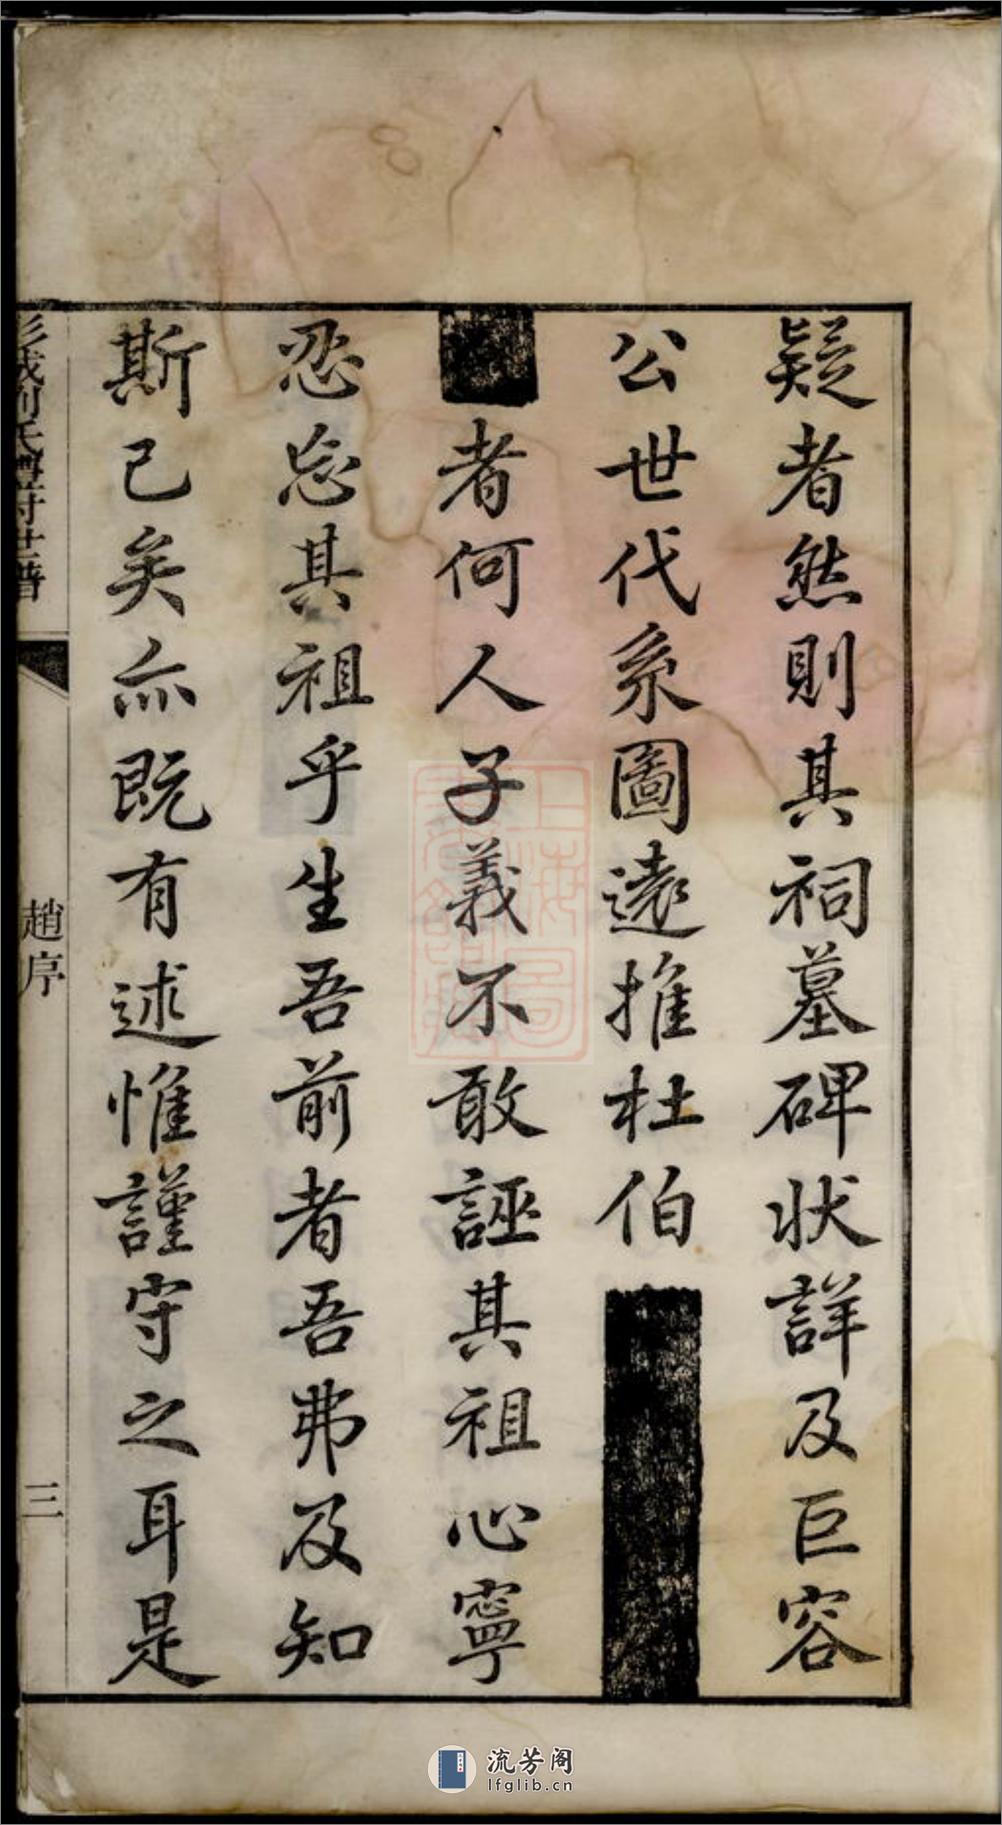 疑者然則其祠墓碑狀詳及巨容
公世代系圖遠推杜伯
者何人子義不敢誣其祖心寧
忍忘其祖乎生吾前者吾弗及知
斯已矣亦既有述惟謹守之耳是
趙序
三
上海圖
流芳阁
lfglib.cn